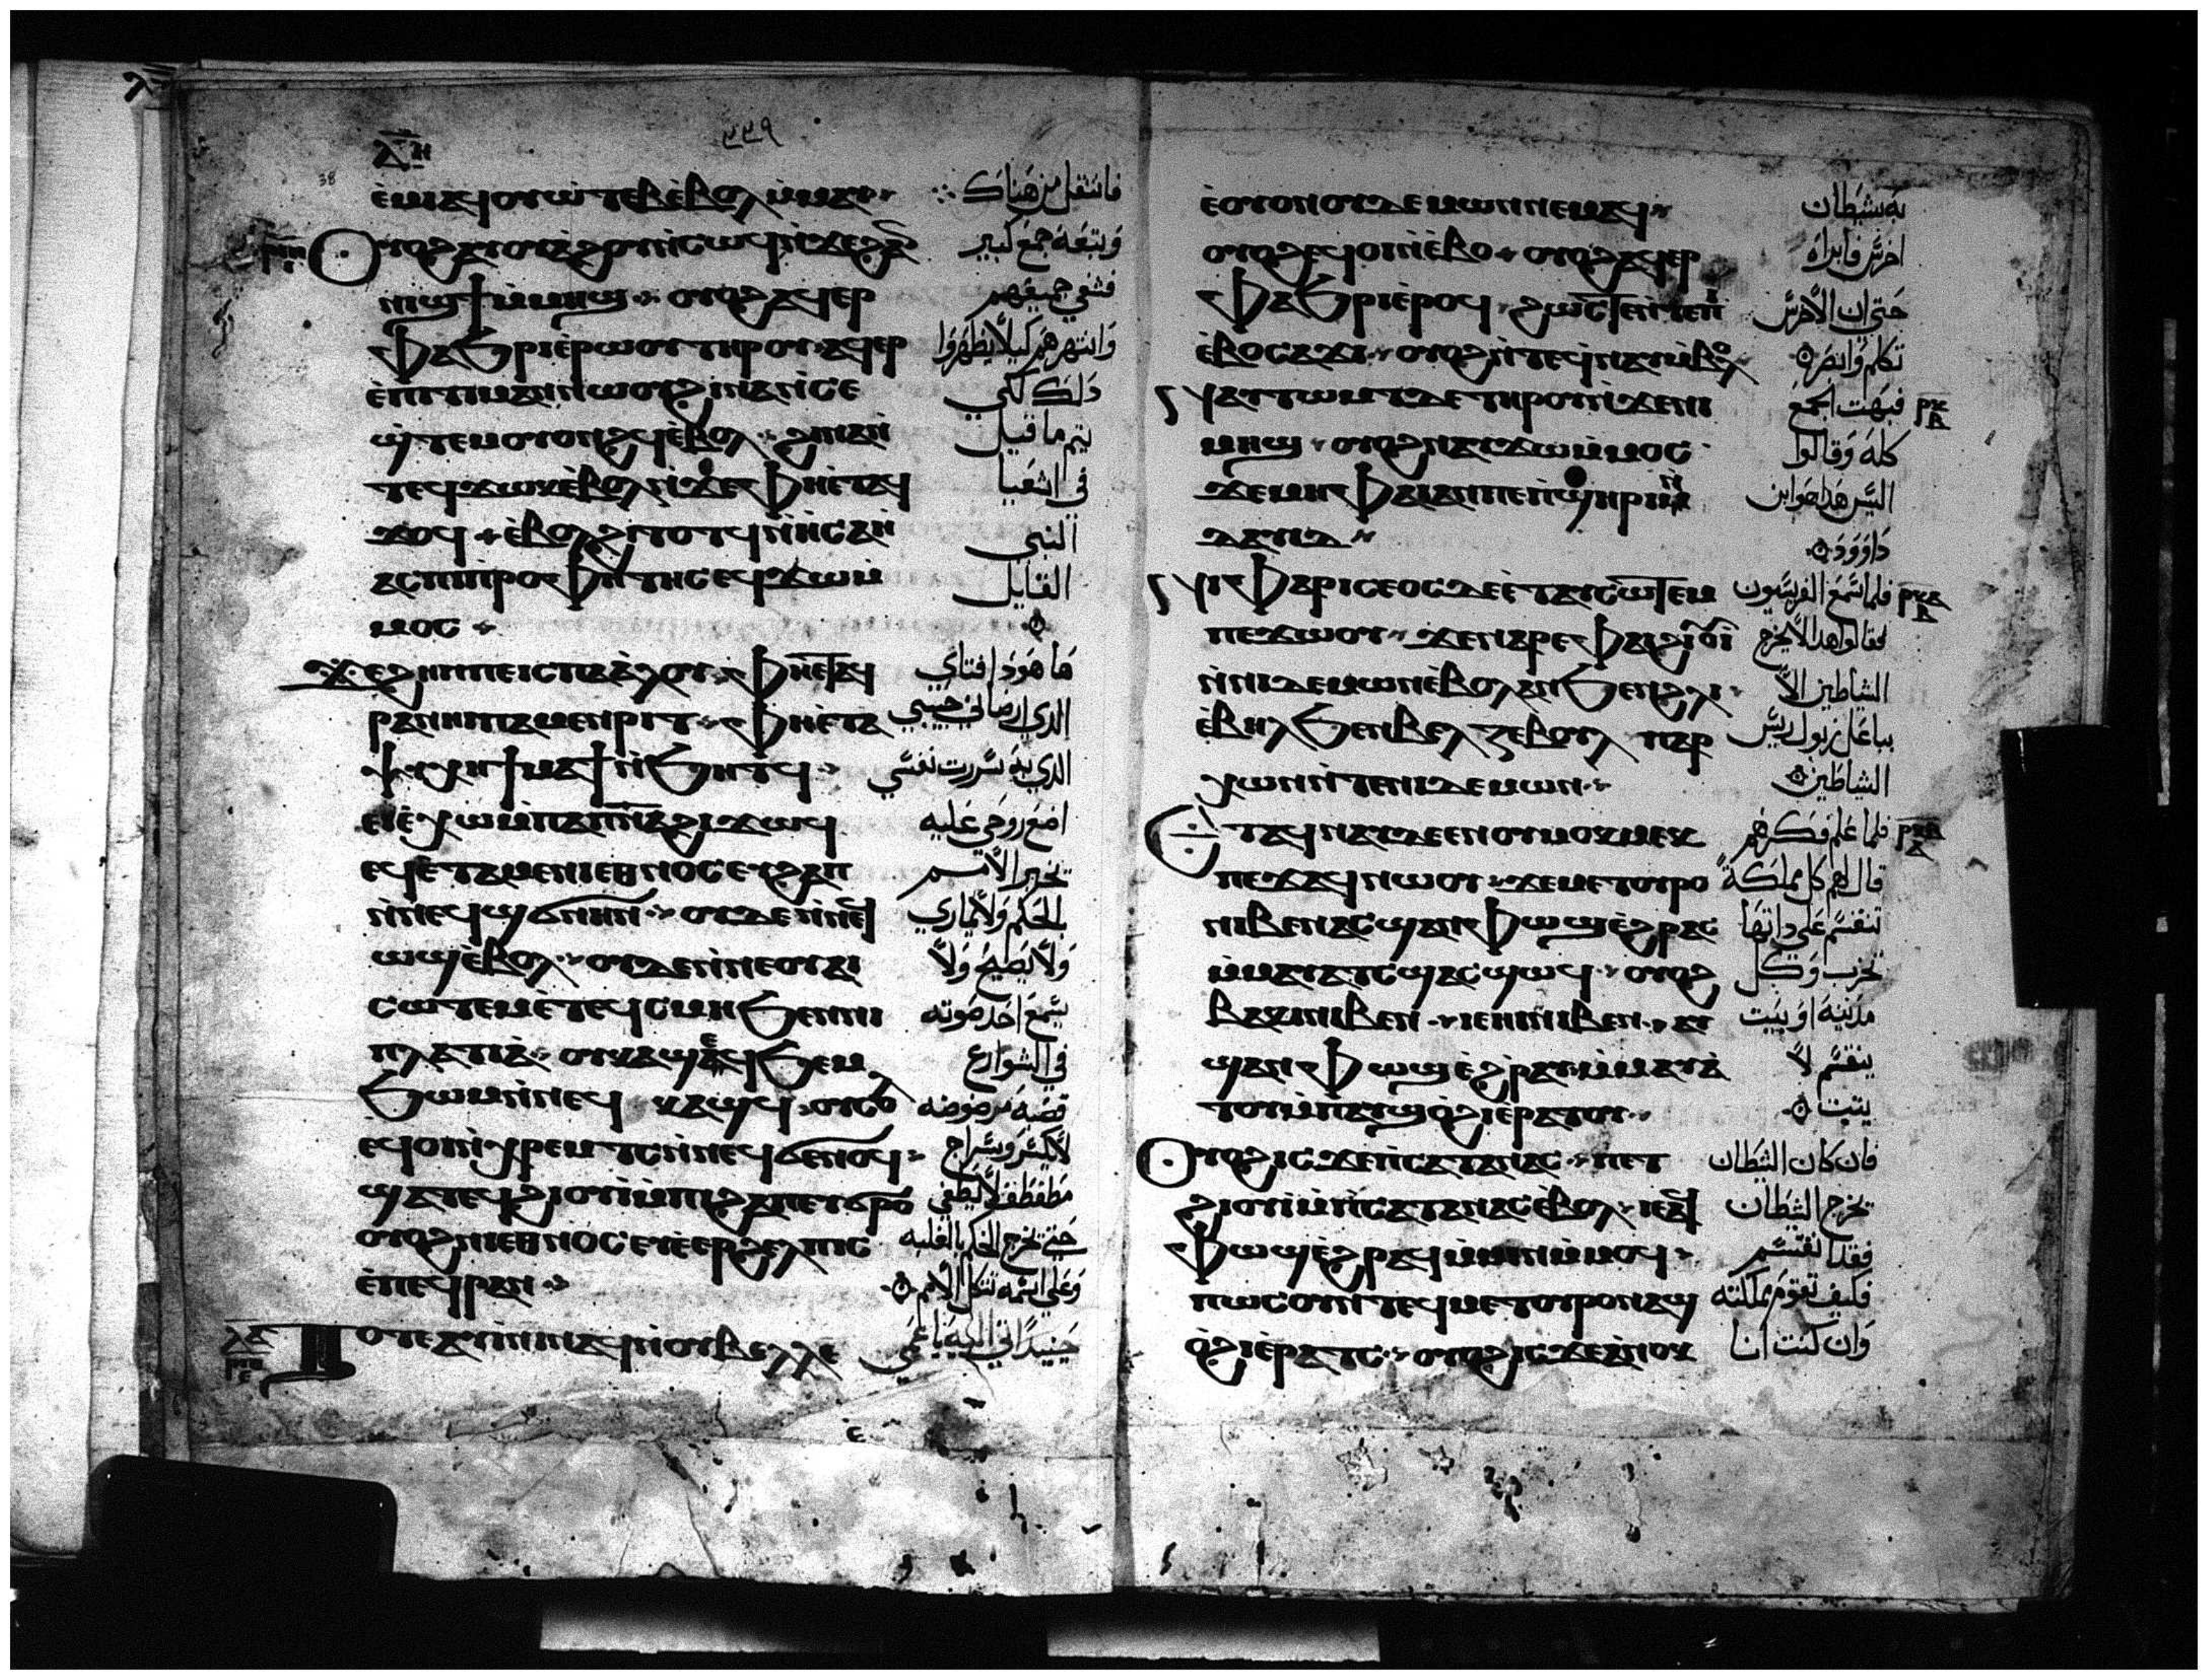 ⲗ̅ⲏ̅
٣٣٩
38
ⲉⲙⲁϥⲟⲩⲱⲧⲉⲃ ⲉⲃⲟⲗ ⲙⲙⲁⲩ فانتقل من هناك
ⲟⲩⲟϩ ⲁⲩⲟⲩⲁϩⲟⲩ ⲛⲥⲱϥ ⲛϫⲉϩⲁⲛ وتبعه جمع كبير
ⲛⲓϣϯ ⲙⲙⲏϣ ⲟⲩⲟϩ ⲁϥⲉⲣ فشفى جميعهم
ⲫⲁϧⲣⲓ ⲉⲣⲱⲟⲩ ⲧⲏⲣⲟⲩ ⲁϥⲉⲣ وانتهرهم كيلا يظهروا
ⲉⲡⲓⲧⲓⲙⲁⲛ ⲛⲱⲟⲩ ϩⲓⲛⲁ ⲛⲥⲉ دلك لكي
ϣⲧⲉⲙⲟⲩⲟⲛϩϥ ⲉⲃⲟⲗ ϩⲓⲛⲁ ⲛ يتم ما قيل
ⲧⲉϥϫⲱⲕ ⲉⲃⲟⲗ ⲛϫⲉ ⲫⲏⲉⲧⲁϥ في اشعيا
ϫⲟϥ ⲉⲃⲟⲗ ϩⲓⲧⲟⲧϥ ⲛⲏⲥⲁⲏ النبي
ⲁⲥ ⲡⲓⲡⲣⲟⲫⲏⲧⲏⲥ ⲉϥϫⲱ ⲙ القايل
ⲙⲟⲥ
ϫⲉ ϩⲏⲡⲡⲉ ⲓⲥ ⲡⲁⲁⲗⲟⲩ ⲫⲏⲉⲧⲁϥ ما هودا فتاي
ⲣⲁⲛⲏⲓ ⲡⲁⲙⲉⲛⲣⲓⲧ ⲫⲏⲉⲧⲁ الدي ارضاني حبيبي
ⲯⲩⲭⲏ ϯⲙⲁϯ ⲛϧⲏⲧϥ الدي به سررت نفسي
ⲉⲓⲉⲭⲱ ⲙⲡⲁⲡ̅ⲛ̅ⲁ̅ ϩⲓϫⲱϥ اضع روحي عليه
ⲉϥⲉⲧⲁⲙⲉ ⲛⲓⲉⲑⲛⲟⲥ ⲉⲩϩⲁⲡ تخبر الامم
ⲛⲛⲉϥϣϭⲛⲏⲛ ⲟⲩⲇⲉ ⲛⲛⲉϥ بالحكم ولا يماري
ⲱϣ ⲉⲃⲟⲗ ⲟⲩⲇⲉ ⲛⲛⲉ ⲟⲩⲁⲓ ولا يصيح ولا
ⲥⲱⲧⲉⲙ ⲉⲧⲉϥⲥⲙⲏ ϧⲉⲛ ⲛⲓ يسمع احد صوته
ⲡⲗⲁⲧⲓⲁ ⲟⲩⲕⲁϣ ⲉϥϧⲉⲙ في الشوارع
ϧⲱⲙ ⲛⲛⲉϥ ⲕⲁϣϥ ⲟⲩⲥⲟⲗ قصبه مرضوضه
ⲉϥⲟⲓ ⲛⲭⲣⲉⲙⲧⲥ ⲛⲛⲉϥϭⲉⲛⲟϥ لا يكسر وسراج
ϣⲁⲧⲉϥϩⲓⲟⲩⲓ ⲙⲡⲓϩⲁⲡ ⲉⲩϭⲣⲟ مطفطف لا يطفي
ⲟⲩⲟϩ ⲛⲓⲉⲑⲛⲟⲥ ⲉⲩⲉⲉⲣϩⲉⲗⲡⲓⲥ حتى يخرج الحكم بالغلبه
ⲉⲡⲉϥⲣⲁⲛ وعلى اسمه تتكل الامم
ⲧⲟⲧⲉ ⲁⲩⲓⲛⲓ ⲛⲁϥ ⲛⲟⲩⲃⲉⲗⲗⲉ حينيدا اتي اليه باعمى
ⲉⲟⲩⲟⲛ ⲟⲩⲇⲉⲙⲱⲛ ⲛⲉⲙⲁϥ به شيطان
ⲟⲩⲟϩ ⲉϥⲟⲓ ⲛⲉⲃⲟ ⲟⲩⲟϩ ⲁϥⲉⲣ اخرس فابراه
ⲫⲁϧⲣⲓ ⲉⲣⲟϥ ϩⲱⲥⲧⲉ ⲛⲧⲉⲡⲓ حتى ان الاخرس
ⲉⲃⲟ ⲥⲁϫⲓ ⲟⲩⲟϩ ⲛⲧⲉϥⲛⲁⲩ ⲙⲃⲟⲗ تكلم وابصر
ⲛⲁⲩⲧⲱⲙⲧ ⲇⲉ ⲧⲏⲣⲟⲩ ⲛϫⲉⲛⲓ فبهت الجمع
ⲙⲏϣ ⲟⲩⲟϩ ⲛⲁⲩϫⲱ ⲙⲙⲟⲥ كله وقالوا
ϫⲉ ⲙⲏ ⲫⲁⲓ ⲁⲛ ⲡⲉ ⲡϣⲏⲣⲓ ⲛ اليس هدا هو ابن
ⲇⲁⲩⲓⲇ داوود
ⲛⲓⲫⲁⲣⲓⲥⲉⲟⲥ ⲇⲉ ⲉⲧⲁⲩⲥⲱⲧⲉⲙ فلما سمع الفريسيون
ⲡⲉϫⲱⲟⲩ ϫⲉ ⲛⲁⲣⲉ ⲫⲁⲓ ϩⲓⲟⲩⲓ فقالوا هدا لا يخرج
ⲛⲛⲓⲇⲉⲙⲱⲛ ⲉⲃⲟⲗ ⲁⲛ ϧⲉⲛ ϩⲗⲓ الشياطين الا
ⲉⲃⲏⲗ ϧⲉⲛ ⲃⲉⲗⲍⲉⲃⲟⲩⲗ ⲡⲁⲣ بباعل زبول ريس
ⲭⲱⲛ ⲛⲧⲉ ⲛⲓⲇⲉⲙⲱⲛ الشياطين
ⲉⲧⲁϥⲛⲁⲩ ⲇⲉ ⲉⲛⲟⲩⲙⲟⲕⲙⲉⲕ فلما علم فكرهم
ⲡⲉϫⲁϥ ⲛⲱⲟⲩ ϫⲉ ⲙⲉⲧⲟⲩⲣⲟ قال لهم كل مملكة
ⲛⲓⲃⲉⲛ ⲁⲥϣⲁⲛⲫⲱϣ ⲉϩⲣⲁⲥ تنقسم على داتها
ⲙⲙⲁⲩⲁⲧⲥ ϣⲁⲥϣⲱϥ ⲟⲩⲟϩ تخرب وكل
ⲃⲁⲕⲓ ⲛⲓⲃⲉⲛ ⲓⲉ ⲏⲓ ⲛⲓⲃⲉⲛ ⲁⲩ مدينه او بيت
ϣⲁⲛⲫⲱϣ ⲉϩⲣⲁⲩ ⲙⲙⲁⲩⲁ ينقسم لا
ⲧⲟⲩ ⲙⲡⲁⲩϣⲟϩⲓ ⲉⲣⲁⲧⲟⲩ يثبت
ⲟⲩⲟϩ ⲓⲥϫⲉ ⲡⲥⲁⲧⲁⲛⲁⲥ ⲡⲉⲧ فان كان الشيطان
ϩⲓⲟⲩⲓ ⲙⲡⲥⲁⲧⲁⲛⲁⲥ ⲉⲃⲟⲗ ⲓⲉ ⲁϥ يخرج الشيطان
ⲫⲱϣ ⲉϩⲣⲁϥ ⲙⲙⲓⲛ ⲙⲙⲟϥ فقد انقسم
ⲡⲱⲥ ⲟⲩⲛ ⲧⲉϥⲙⲉⲧⲟⲩⲣⲟ ⲛⲁϣ فكيف تقوم مملكته
ⲟϩⲓ ⲉⲣⲁⲧⲥ ⲟⲩⲟϩ ⲓⲥϫⲉ ⲁⲛⲟⲕ وان كنت انا